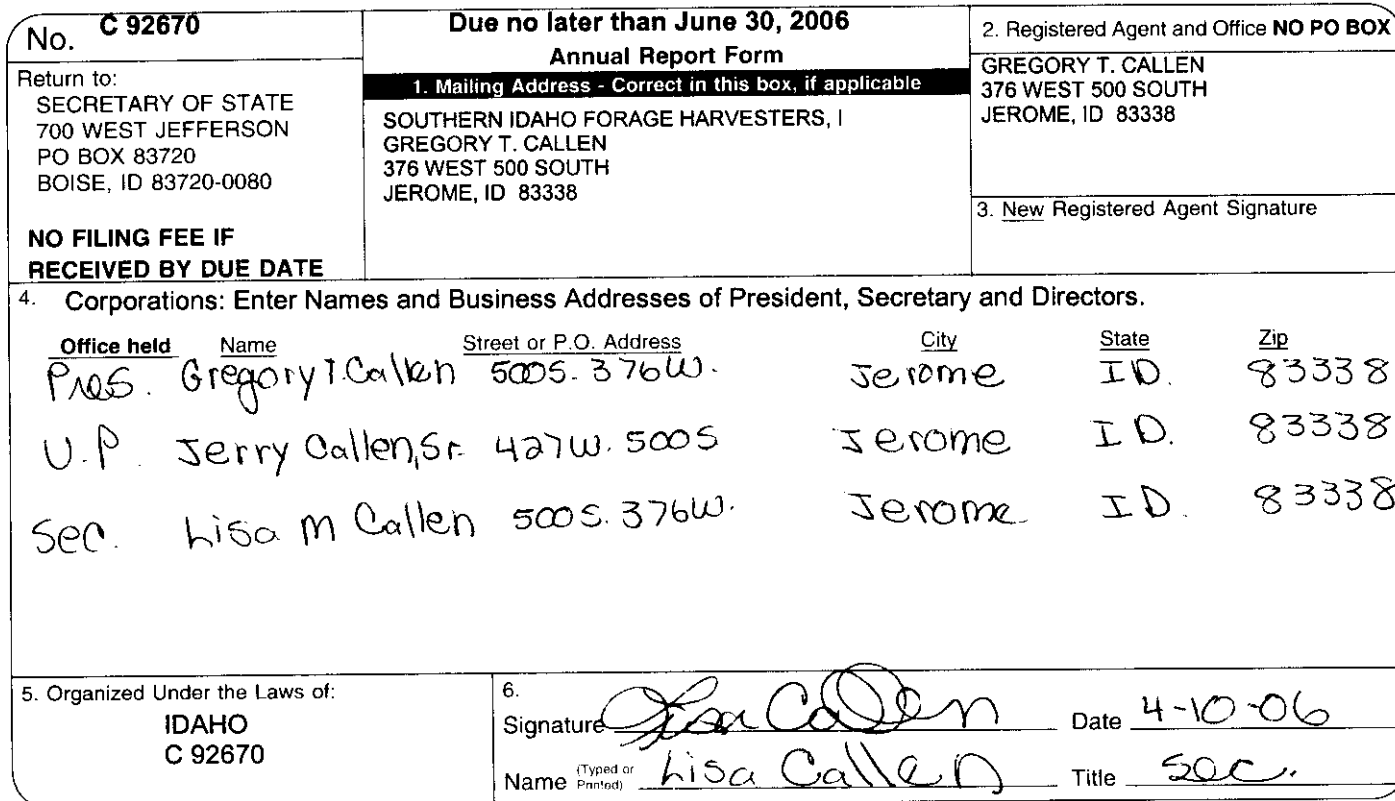 No. C 92670
Return to:
SECRETARY OF STATE
700 WEST JEFFERSON
PO BOX 83720
BOISE, ID 83720-0080
NO FILING FEE IF
RECEIVED BY DUE DATE
Due no later than June 30, 2006
Annual Report Form
1. Mailing Address - Correct in this box, if applicable
SOUTHERN IDAHO FORAGE HARVESTERS, I
GREGORY T. CALLEN
376 WEST 500 SOUTH
JEROME, ID 83338
2. Registered Agent and Office NO PO BOX
GREGORY T. CALLEN
376 WEST 500 SOUTH
JEROME, ID 83338
3. New Registered Agent Signature
4. Corporations: Enter Names and Business Addresses of President, Secretary and Directors.
Office held Name Street or P.O. Address City State Zip
Pres. Gregory T. Callen 500S. 376W. Jerome ID. 83338
V.P. Jerry Callen, Sr. 427W. 500S Jerome ID. 83338
Sec. Lisa M Callen 500S. 376W. Jerome ID. 83338
5. Organized Under the Laws of:
IDAHO
C 92670
6.
Signature Lisa Callen Date 4-10-06
Name (Typed or Printed) Lisa Callen Title Sec.